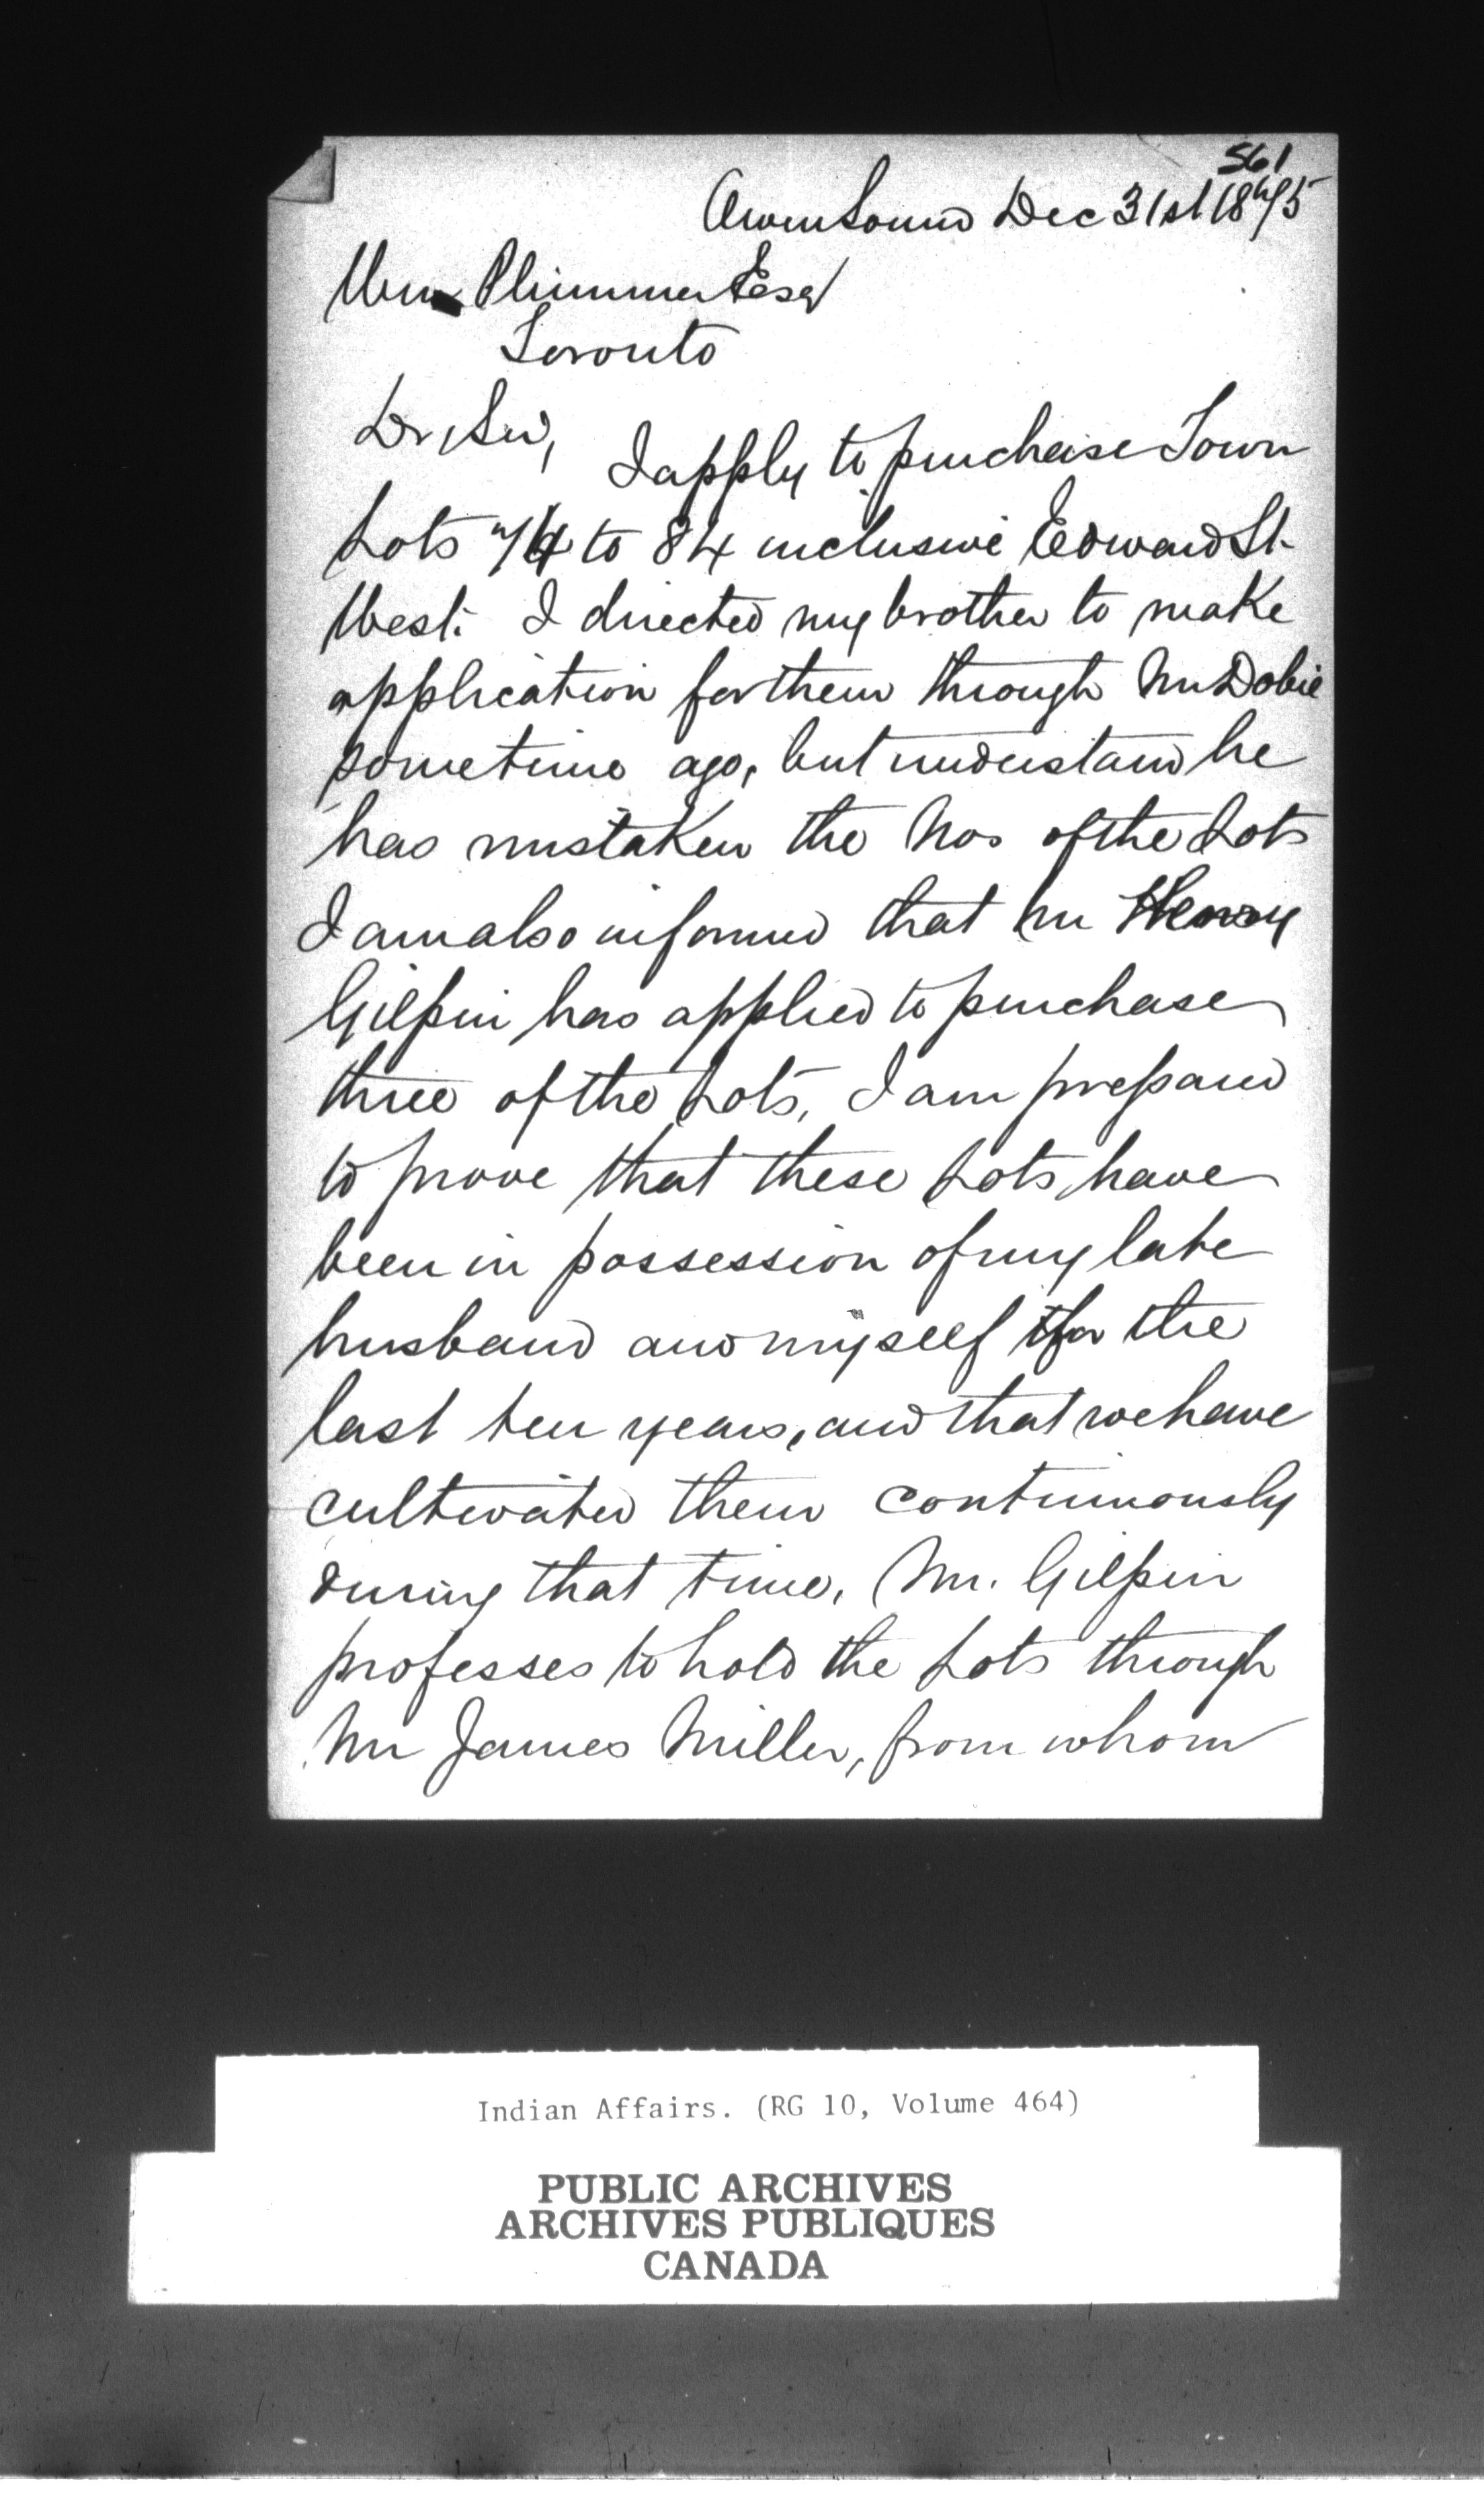 561
Owen Sound Dec 31st 1875
Wm Plummer Esq
Toronto
Dr Sir,
I apply to purchase Town
Lots 74 to 84 inclusive Edward St.
West. I directed my brother to make
application for them through Mr Dobie
sometime ago, but understand he
has mistaken the Nos of the Lots
I am also informed that Mr Henry
Gilpin has applied to purchase
three of the Lots, I am prepared
to prove that these Lots have
been in possession of my late
husband and myself for the
last ten years, and that we have
cultivated them continuously
during that time, Mr. Gilpin
professes to hold the Lots through
Mr James Miller, from whom
Indian Affairs. (RG 10, Volume 464)
PUBLIC ARCHIVES
ARCHIVES PUBLIQUES
CANADA